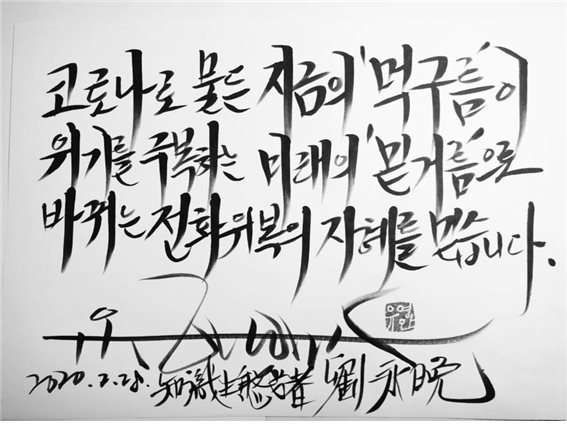 코로나로 물든 지금의 '먹구름'이
위기를 극복하는 미래의 '밑거름'으로
바뀌는 전화위복의 지혜를 믿습니다.
유영만
2020.2.28. 知識生態學者 劉永晩